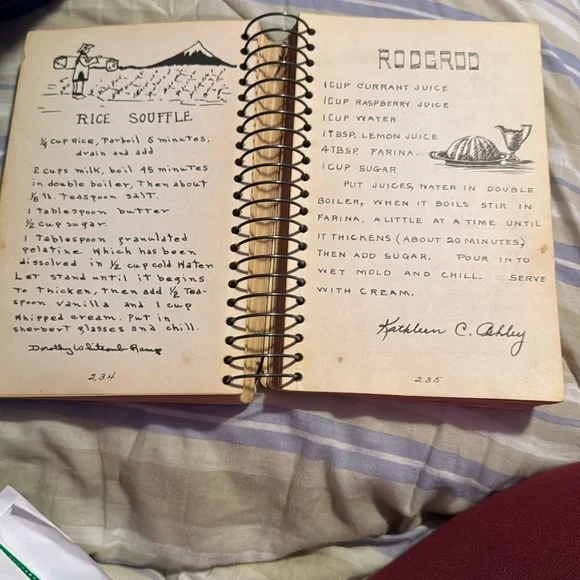 RICE SOUFFLE
¼ cup Rice, Parboil 5 minutes,
drain and add
2 cups milk, boil 45 minutes
in double boiler, Then about
⅛ teaspoon salt.
1 tablespoon butter
½ cup sugar.
1 Tablespoon granulated
gelatine which has been
dissolved in ½ cup cold Water
Let stand until it begins
to Thicken, then add ½ Tea-
spoon vanilla and 1 cup
Whipped cream. Put in
sherbert glasses and chill.
Dorothy Whitcomb Ramp
234
RODGROD
1 CUP CURRANT JUICE
1 CUP RASPBERRY JUICE
1 CUP WATER
1 TBSP. LEMON JUICE
4 TBSP. FARINA.
1 CUP SUGAR
PUT JUICES, WATER IN DOUBLE
BOILER, WHEN IT BOILS STIR IN
FARINA, A LITTLE AT A TIME UNTIL
IT THICKENS (ABOUT 20 MINUTES)
THEN ADD SUGAR. POUR INTO
WET MOLD AND CHILL. SERVE
WITH CREAM.
Kathleen C. Ashley
235